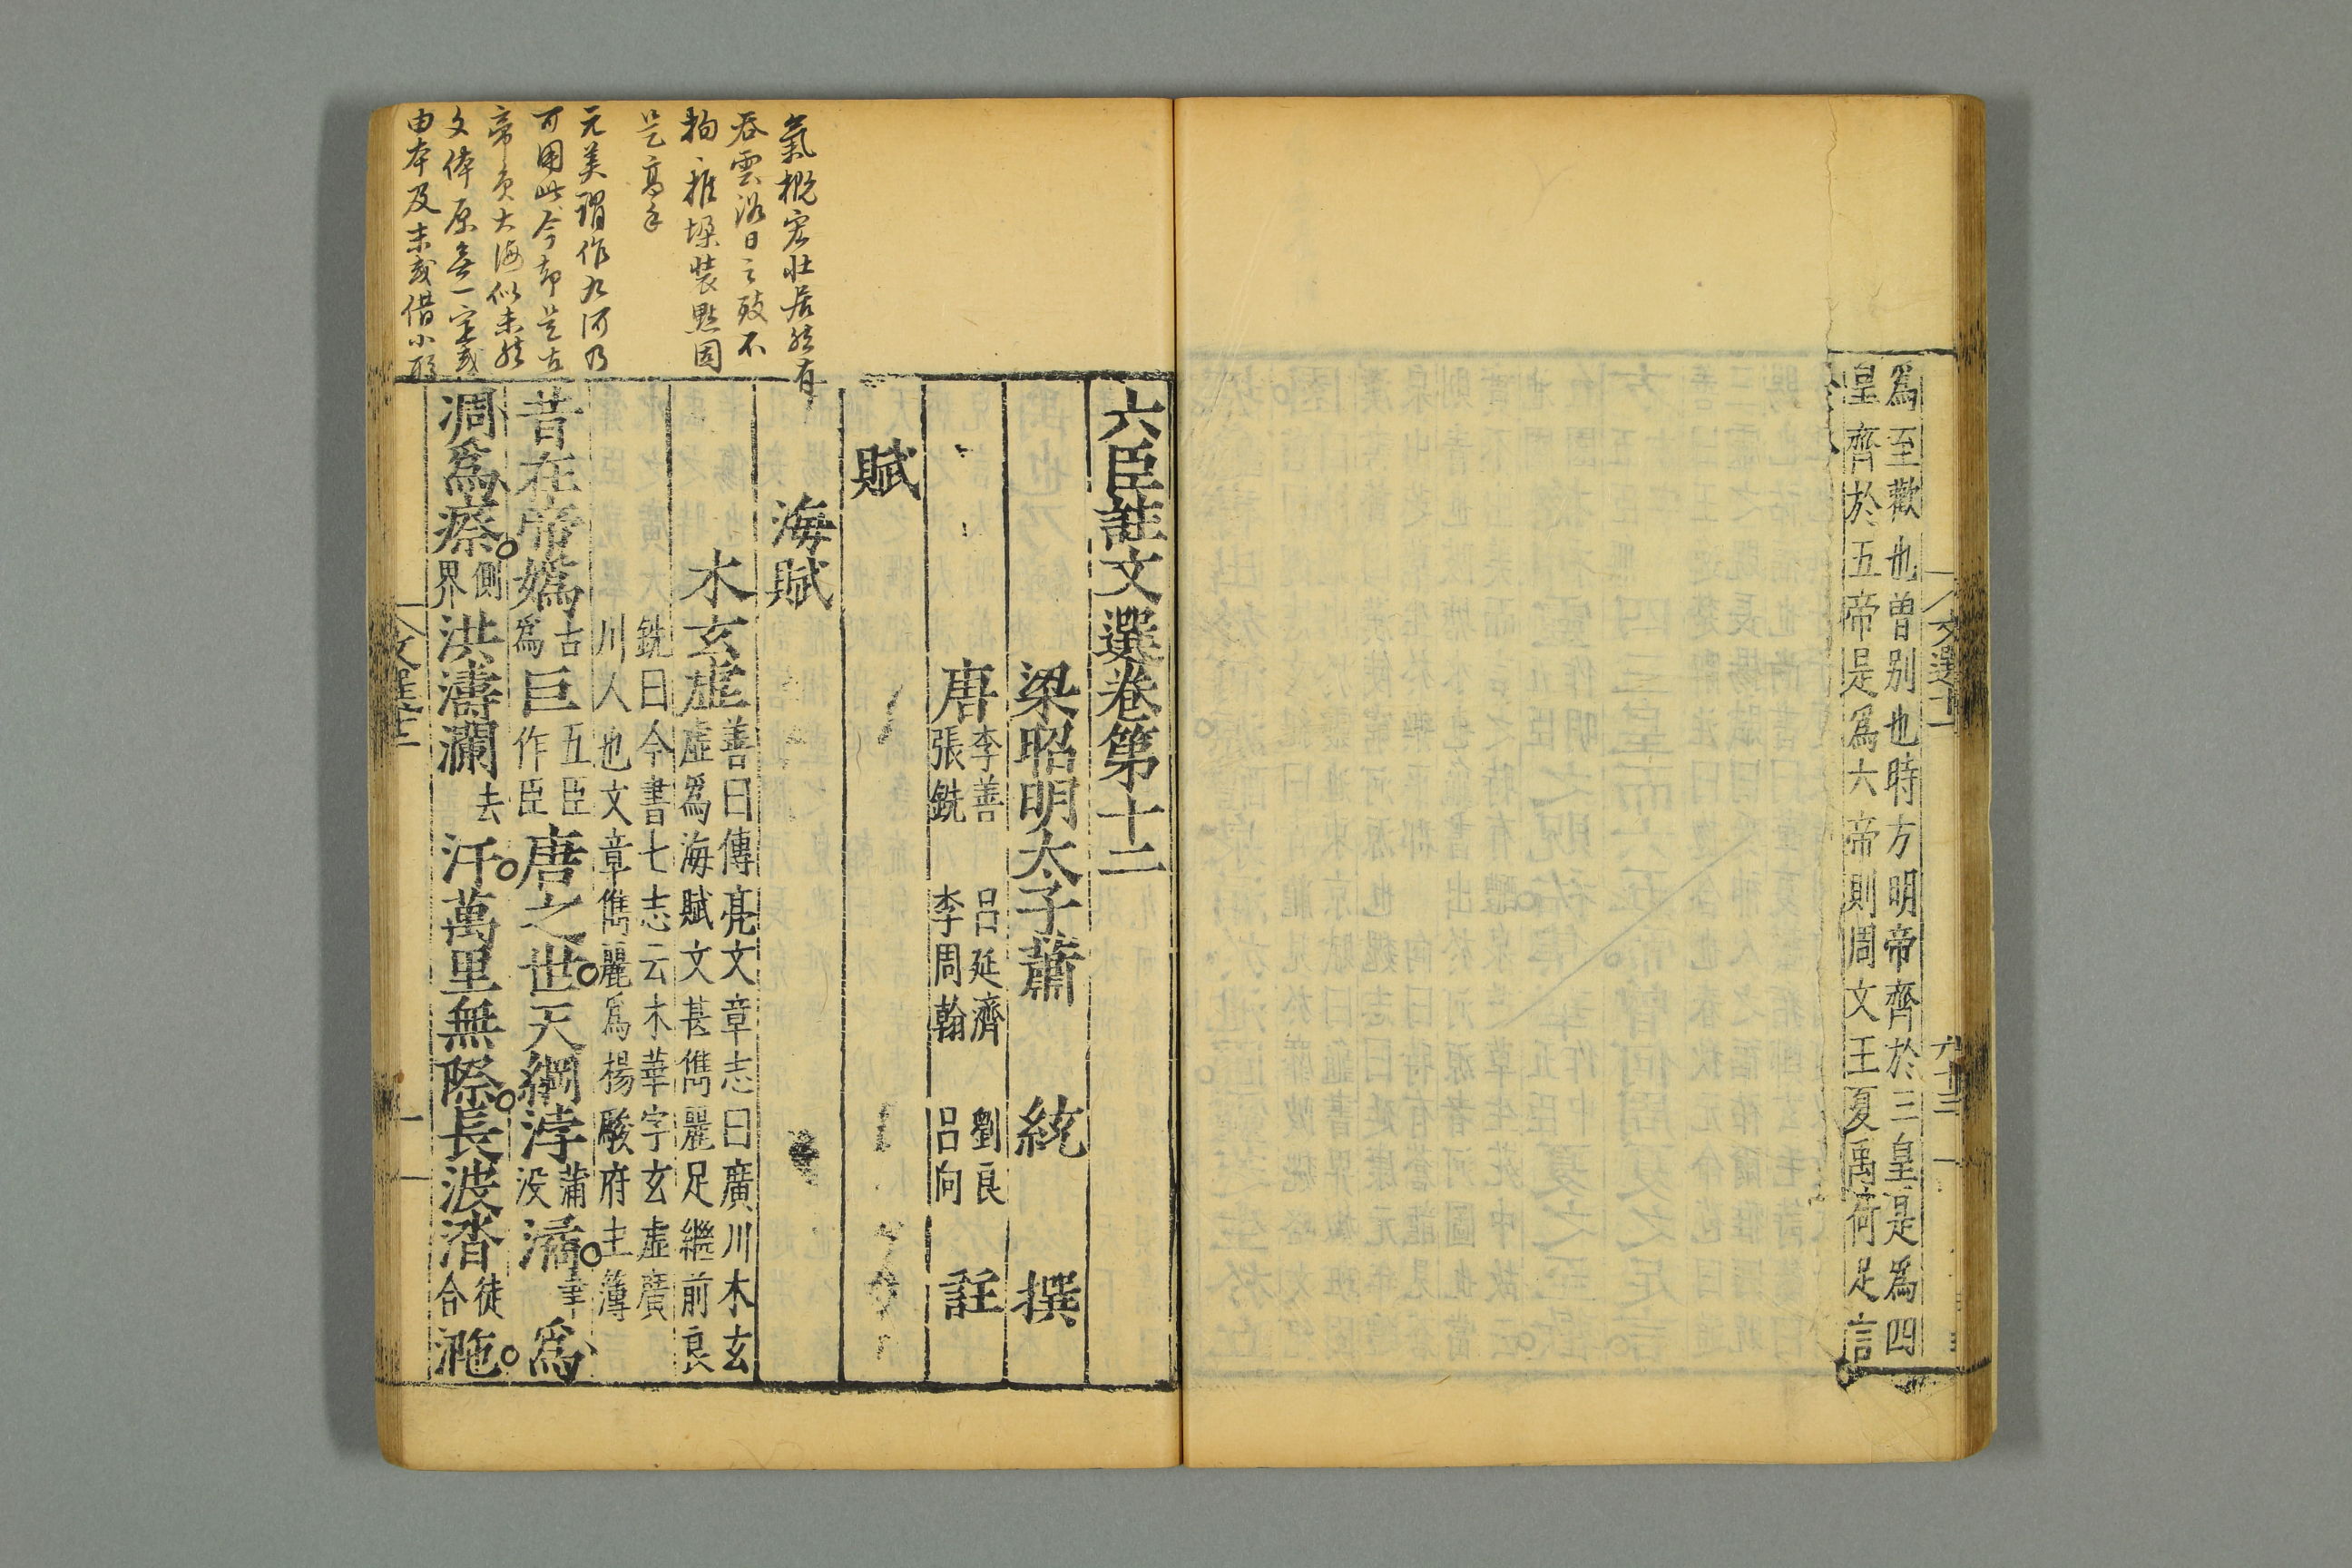 為至歡也曽别也時方明帝齊於三皇是為四
皇齊於五帝是爲六帝則周文王夏禹何足言
六臣註文選卷第十二
梁昭明太子蕭統撰
唐李善呂延濟劉良
張銑李周翰呂向註
賦
海賦
木玄虛善曰傳亮文章志曰廣川木玄
虛爲海賦文甚儁麗足繼前良
銑曰今書七志云木華字玄虛廣
川人也文章儁麗爲楊駿府主簿
昔在帝嬀古爲巨五臣作臣唐之世天綱浡蒲没潏聿爲
凋爲瘵側界洪濤瀾去汗萬里無際長波涾徒合㴰
氣概宏壯居然有
吞雲浴日之致不
拘推垜裝點固
是高手
元美謂作九河乃
可用此今却是古
帝負大海似未然
文体原無一定或
由本及末或借小形